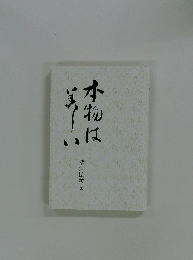 本物は
美しい